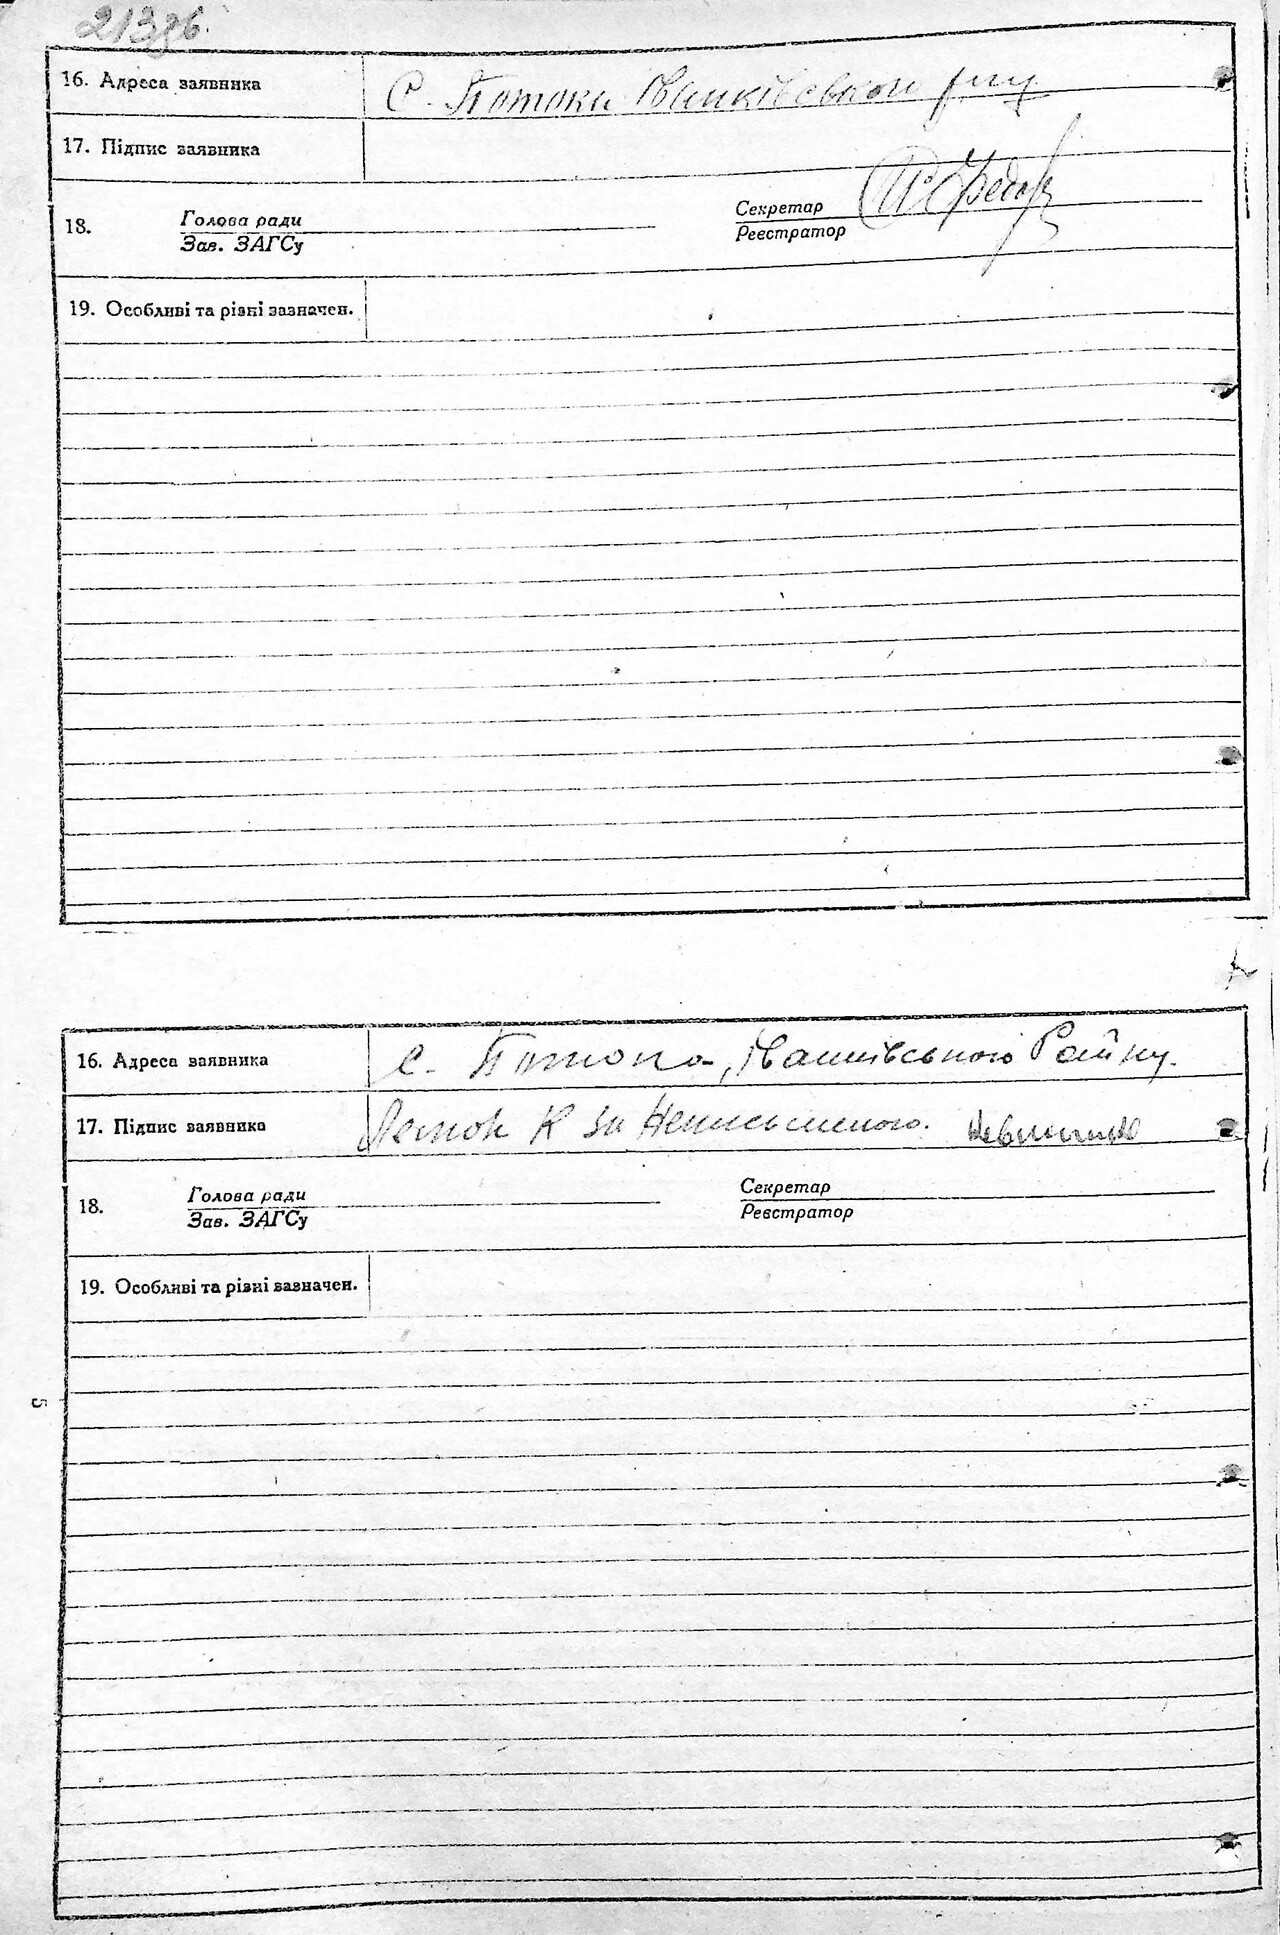 213зв.
16. Адреса заявника С. Потоки
17. Підпис заявника
18. Голова ради Секретар
Зав. ЗАГСу Реєстратор
19. Особливі та різні зазначен.
16. Адреса заявника С. Району.
17. Підпис заявника К за Неписьменого.
18. Голова ради Секретар
Зав. ЗАГСу Реєстратор
19. Особливі та різні зазначен.
5